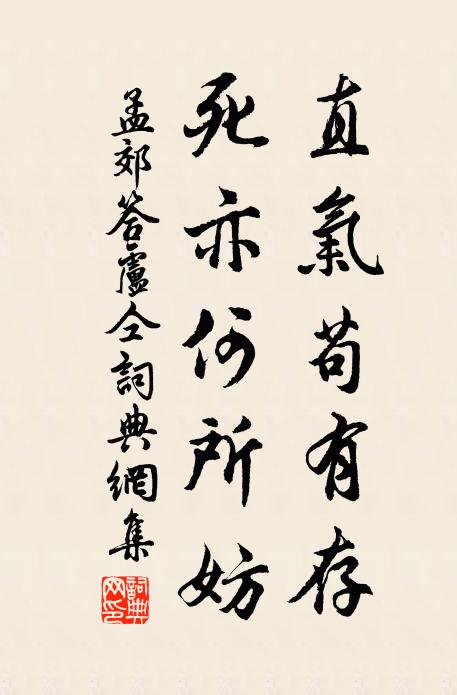 直氣苟有存
死亦何所妨
孟郊答盧仝詞典網集
詞典
网印